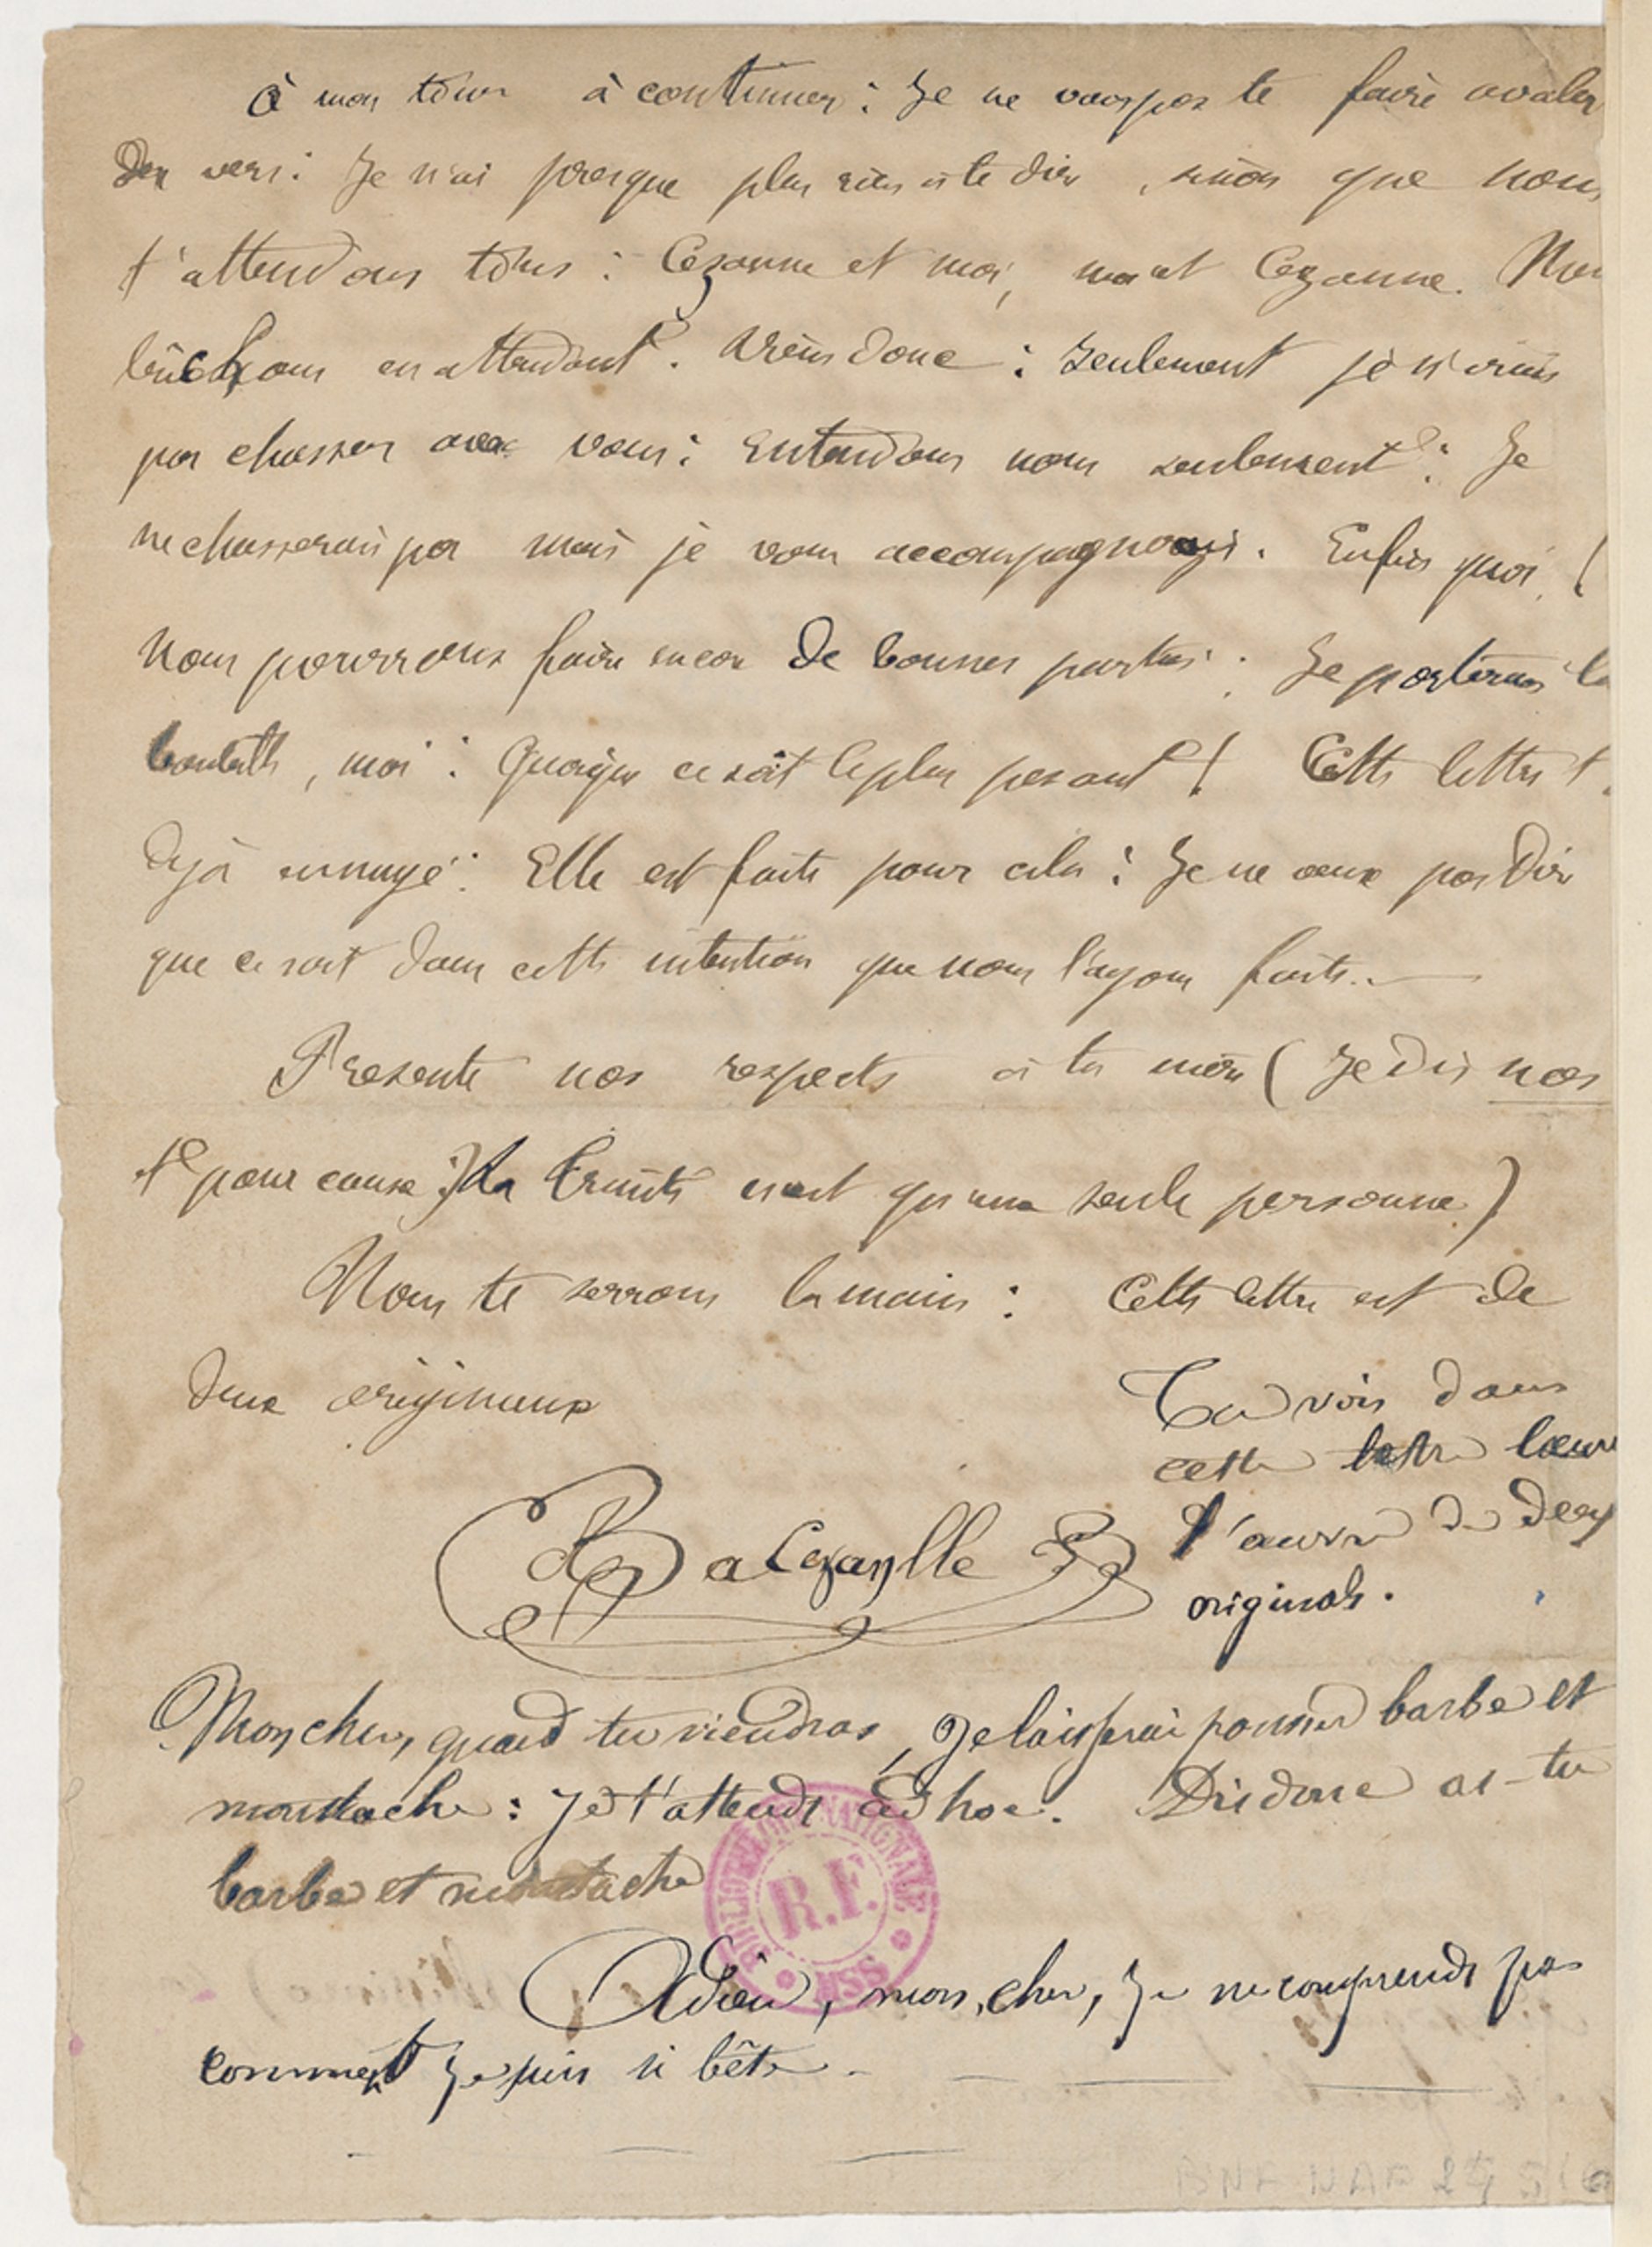 à mon tour à continuer : Je ne veux pas te faire avaler
des vers : Je n'ai presque plus rien à te dire, sinon que nous
t'attendons tous : Cezanne et moi, moi et Cezanne. Nou
bûchons en attendant. Viens donc : Seulement je n'irais
pas chasser avec vous : Entendons nous seulement : Je
ne chasserai pas mais je vous accompagnerai. Enfin quoi !
Nous pourrons faire encore de bonnes parties : Je porterai la
bouteille, moi : Quoique ce soit le plus pesant ! Cette lettre t'
déjà ennuyé : Elle est faite pour cela : Je ne veux pas dire
que ce soit dans cette intention que nous l'ayons faite. —
Presente nos respects à ta mère ( Je dis nos
et pour cause ; ) La Trinité n'est qu'une seule personne )
Nous te serrons la main : Cette lettre est de
deux originaux
Tu vois dans
cette lettre l'œuvre
l'œuvre de deux
originals.
BaCezanylle
Mon cher, quand tu viendras, Je laisserai pousser barbe et
moustache : Je t'attends ad hoc. Dis donc as-tu
barbe et moustache
Adieu, mon cher, Je ne comprends pas
comment Je suis si bête.
BIBLIOTHEQUE NATIONALE
R.F.
MSS
BNF NAF